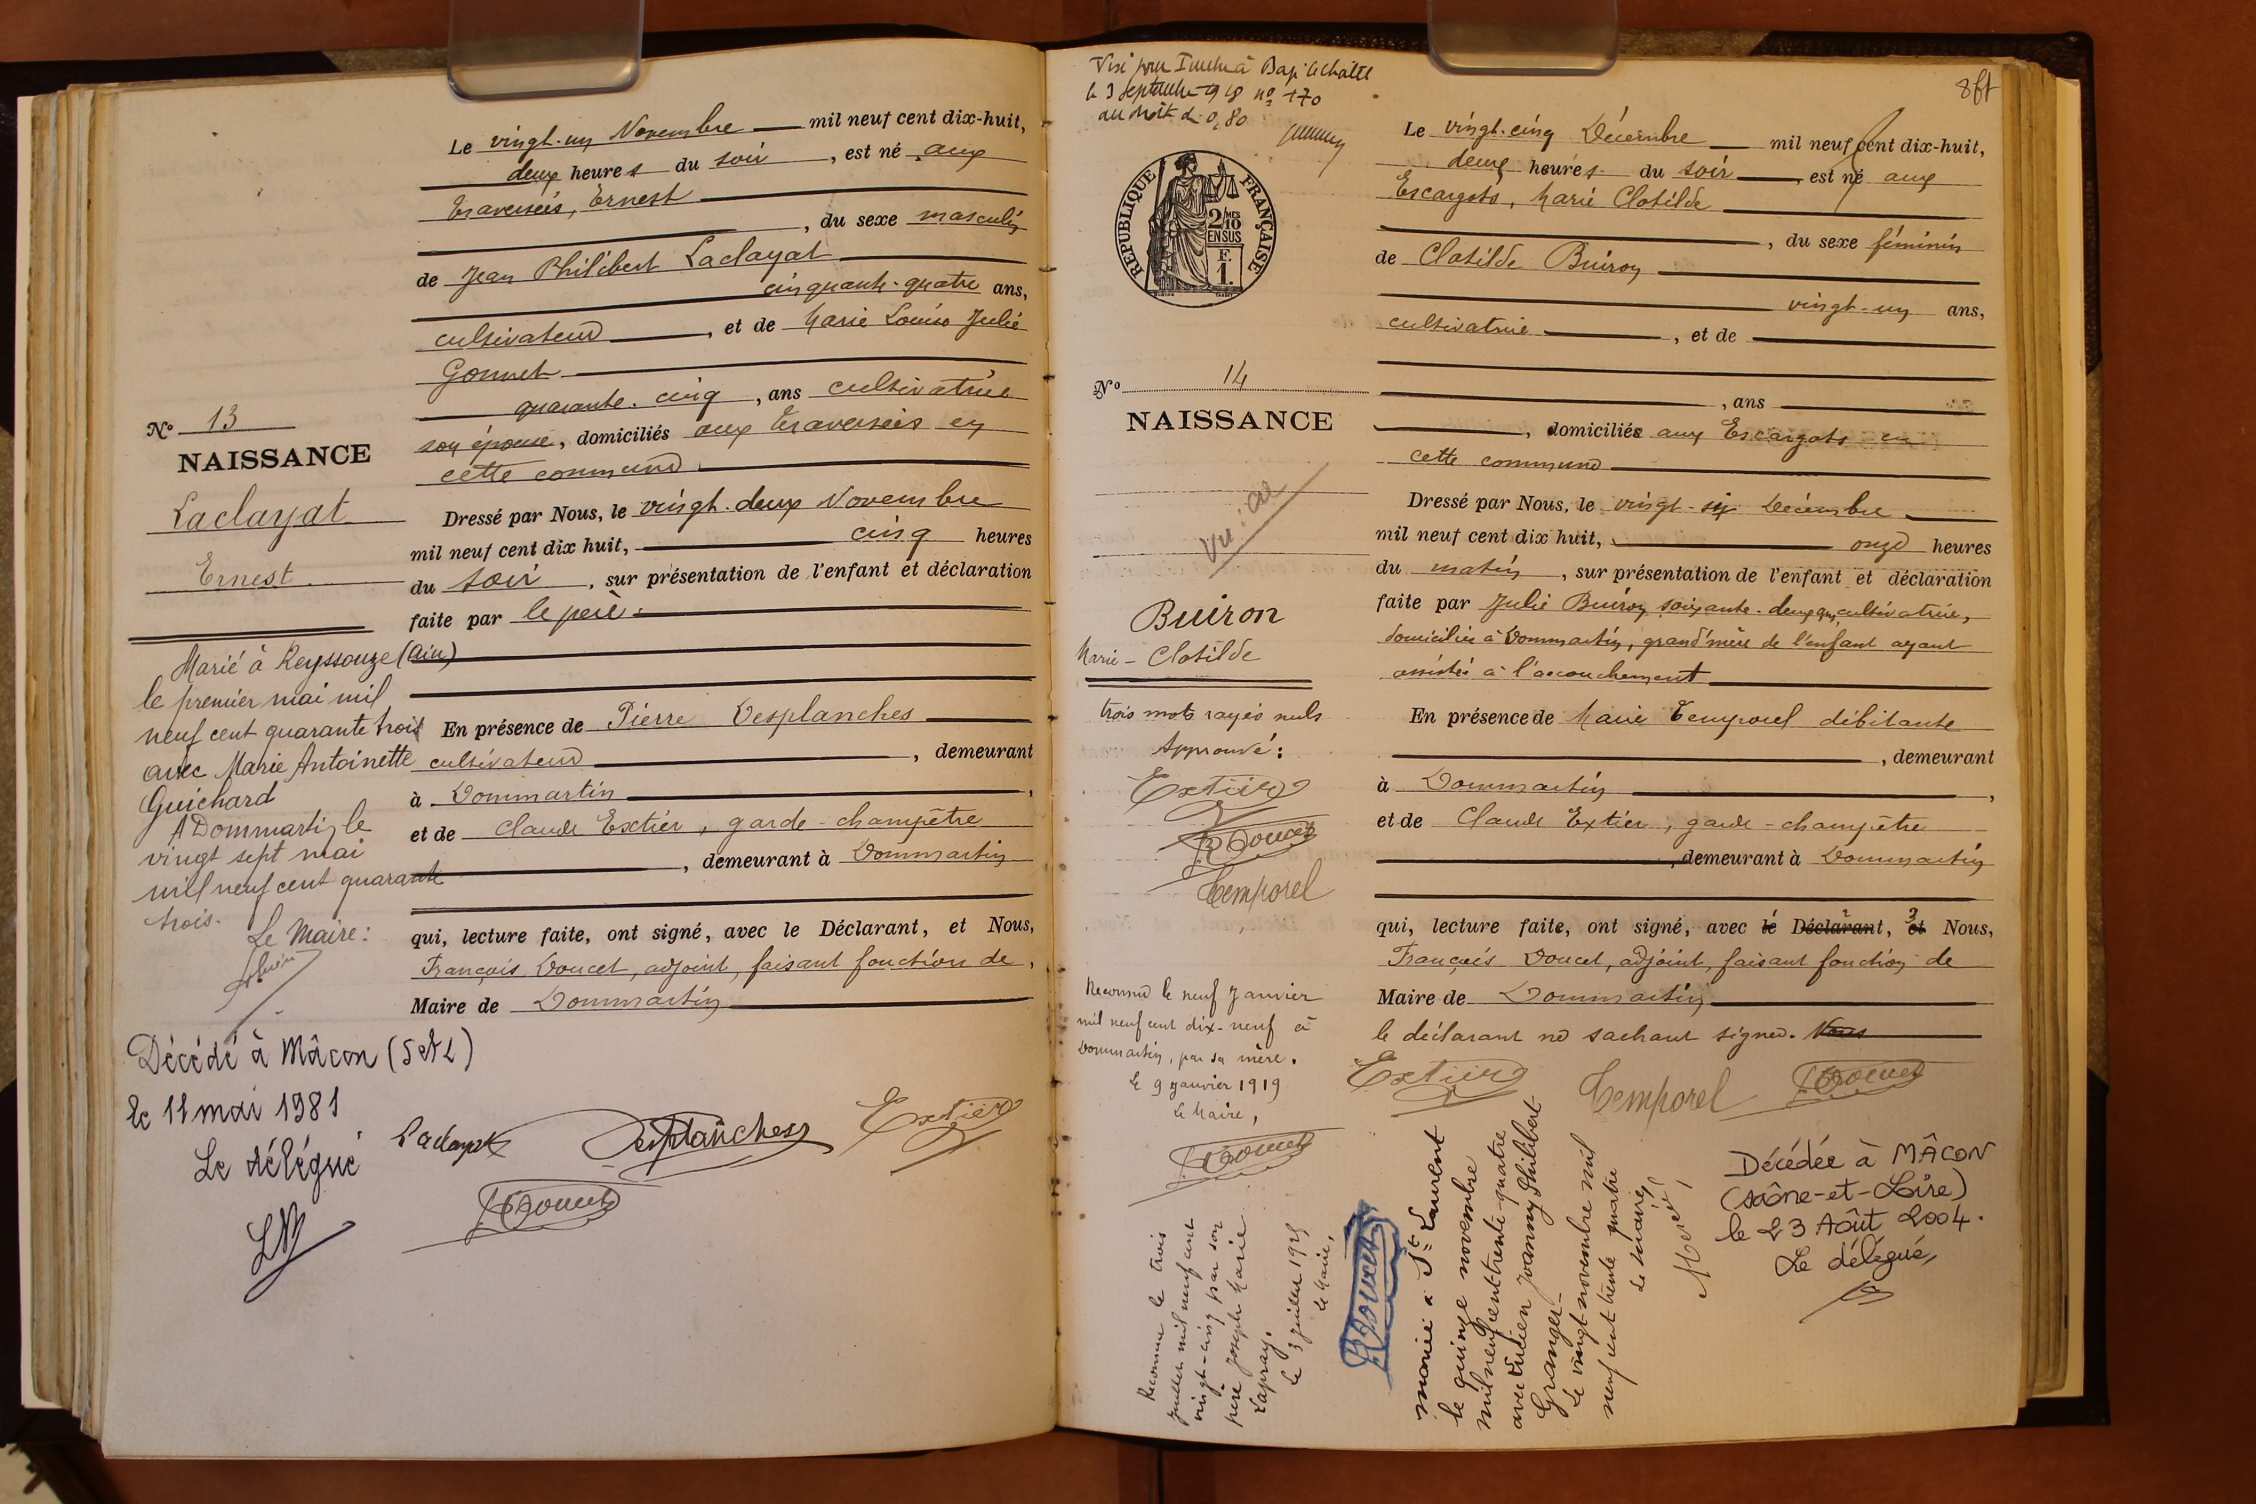 Le vingt-un Novembre mil neuf cent dix-huit,
deux heures du soir, est né aux
Traversées, Ernest
, du sexe masculin
de Jean Philibert Laclayat
cinquante-quatre ans,
cultivateur, et de Marie Louise Julie
Gonnet
quarante-cinq, ans cultivatrice
son épouse, domiciliés aux Traversées en
cette commune.
Dressé par Nous, le vingt-deux Novembre
mil neuf cent dix huit, cinq heures
du soir, sur présentation de l'enfant et déclaration
faite par le père.
En présence de Pierre Desplanches
cultivateur, demeurant
à Dommartin,
et de Claude Extier, garde-champêtre
, demeurant à Dommartin
qui, lecture faite, ont signé, avec le Déclarant, et Nous,
François Doucet, adjoint, faisant fonction de,
Maire de Dommartin
Laclayat Desplanches Extier
Doucet
No 13
NAISSANCE
Laclayat
Ernest
Marié à Reyssouze (Ain)
le premier mai mil
neuf cent quarante trois
avec Marie Antoinette
Guichard
A Dommartin, le
vingt sept mai
mil neuf cent quarante
trois.
Le Maire:
Décédé à Mâcon (S et L)
le 11 mai 1981
Le délégué
8 ft
Visé pour Timbre à Bagé le Châtel
le 3 Septembre 1918 no 170
au droit de 0,80
RÉPUBLIQUE FRANÇAISE
2/10 MES
EN SUS
F.
1.
No 14
NAISSANCE
Buiron
Marie-Clotilde
trois mots rayés nuls
Approuvé:
Extier
Doucet
Temporel
Reconnu le neuf Janvier
mil neuf cent dix-neuf à
Dommartin, par sa mère.
Le 9 janvier 1919
Le Maire,
Doucet
Reconnue le trois
juillet mil neuf cent
vingt-cinq par son
père Joseph Marie
Lapray.
Le 3 juillet 1925
Le Maire,
Doucet
Le vingt-cinq Décembre mil neuf cent dix-huit,
deux heures du soir, est né aux
Escargots, Marie Clotilde
, du sexe féminin
de Clotilde Buiron
vingt-un ans,
cultivatrice, et de
, ans
, domiciliée aux Escargots en
cette commune
Dressé par Nous, le vingt-six Décembre
mil neuf cent dix huit, onze heures
du matin, sur présentation de l'enfant et déclaration
faite par Julie Buiron, soixante-deux ans, cultivatrice,
domiciliée à Dommartin, grand'mère de l'enfant ayant
assistée à l'accouchement
En présence de Marie Temporel débitante
, demeurant
à Dommartin,
et de Claude Extier, garde-champêtre
, demeurant à Dommartin
qui, lecture faite, ont signé, avec le Déclarant, et Nous,
François Doucet, adjoint, faisant fonction de
Maire de Dommartin
le déclarant ne sachant signer. Nous
Extier Temporel Doucet
mariée à St Laurent
le quinze novembre
mil neuf cent trente-quatre
avec Lucien Joanny Philibert
Granger.
Le vingt novembre mil
neuf cent trente quatre
Le maire,
Décédée à MÂCON
(Saône-et-Loire)
le 23 Août 2004.
Le délégué,